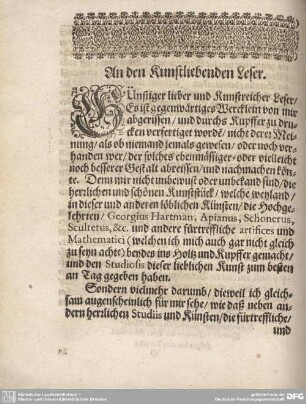 An den Kunstliebenden Leser.
GÜnstiger lieber und Kunstreicher Leser/
Es ist gegenwärtiges Wercklein von mir
abgerissen / und durchs Kupffer zu dru-
cken verfertiget wordē/ nicht derer Mei-
nung/ als ob niemand jemals gewesen/ oder noch ver-
handen wer/ der solches ebenmässiger- oder vielleicht
noch besserer Gestalt abreissen/ und nachmachen kön-
te. Denn mir nicht unbewust oder unbekand sind/ die
herrlichen und schönen Kunststück/ welche weyland/
in dieser und anderen löblichen Künsten/ die Hochge-
lehrten/ Georgius Hartman, Apianus, Schonerus,
Scultetus, &c. und andere fürtreffliche artifices und
Mathematici (welchen ich mich auch gar nicht gleich
zu seyn achte) beydes ins Holtz und Kupffer gemacht/
und den Studiosis dieser lieblichen Kunst zum besten
an Tag gegeben haben.
Sondern vielmehr darumb / dieweil ich gleich-
sam augenscheinlich für mir sehe/ wie daß neben an-
dern herrlichen Studiis und Künsten/ die fürtreffliche/
und